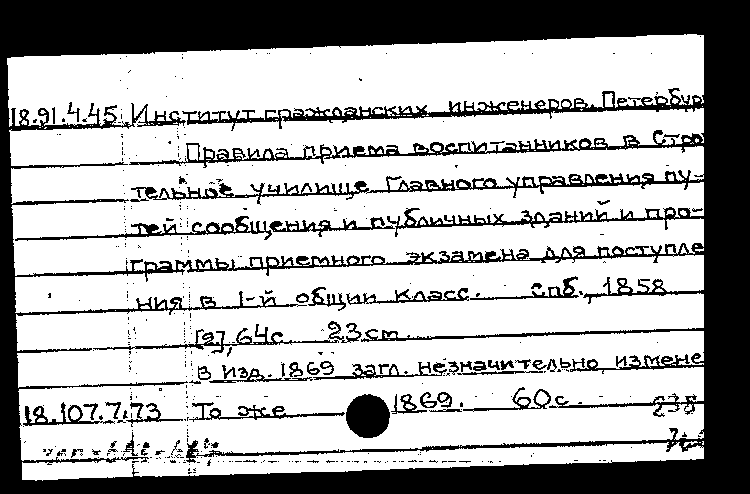 18.91.4.45 Институт гражданских инженеров. Петербур
Правила приема воспитанников в Стро
тельное училище Главного управления пу-
тей сообщения и публичных зданий и про-
граммы приемного экзамена для поступле
ния в 1-й общий класс. СПб., 1858
[2], 64с. 23см.
В изд. 1869 загл. незначительно измене
18.107.7.73 То же 1869. 60с. 238